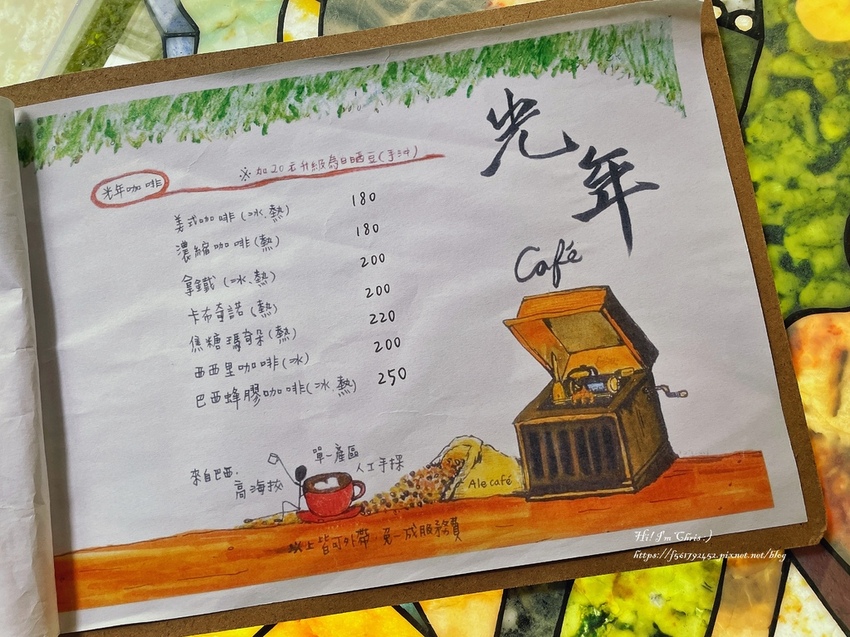 光年
Café
※加20元升級為日晒豆(手沖)
光年咖啡
美式咖啡(冰、熱) 180
濃縮咖啡(熱) 180
拿鐵(冰、熱) 200
卡布奇諾(熱) 200
焦糖瑪奇朵(熱) 220
西西里咖啡(冰) 200
巴西蜂膠咖啡(冰、熱) 250
來自巴西.
高海拔
單一產區
人工手採
Ale café
以上皆可外帶 免一成服務費
Hi! I'm Chris :)
https://f561792452.pixnet.net/blog